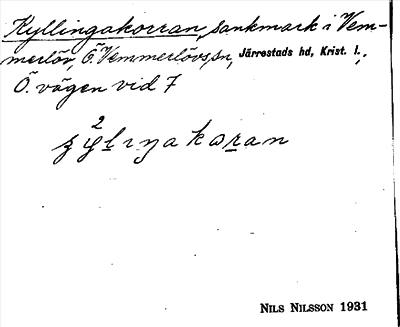 Kyllingakorran, sankmark i Vem-
merlöv, Ö. Vemmerlövs sn, Järrestads hd, Krist. l.,
Ö. vägen vid 7
NILS NILSSON 1931